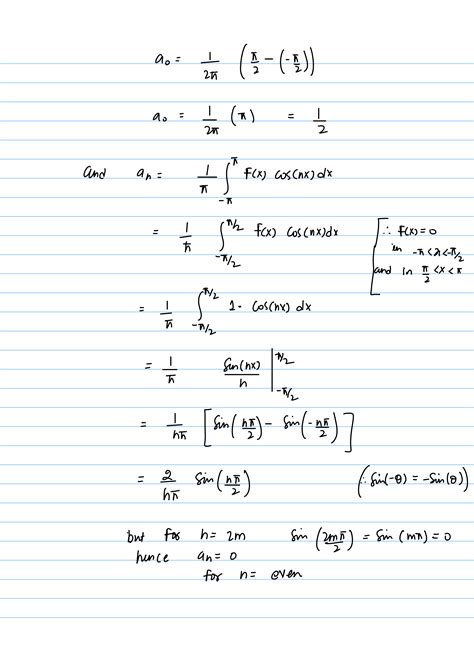 a₀ = 1/2π (π/2 − (−π/2))
a₀ = 1/2π (π) = 1/2
and aₙ = 1/π ∫_{-π}^{π} f(x) cos(nx) dx
= 1/π ∫_{-π/2}^{π/2} f(x) cos(nx) dx [∴ f(x) = 0
in -π < x < -π/2
and in π/2 < x < π
= 1/π ∫_{-π/2}^{π/2} 1· cos(nx) dx
= 1/π sin(nx)/n |_{-π/2}^{π/2}
= 1/nπ [sin(nπ/2) − sin(−nπ/2)]
= 2/nπ sin(nπ/2) (∴ sin(-θ) = -sin(θ))
but for n = 2m sin(2mπ/2) = sin(mπ) = 0
hence aₙ = 0
for n = even